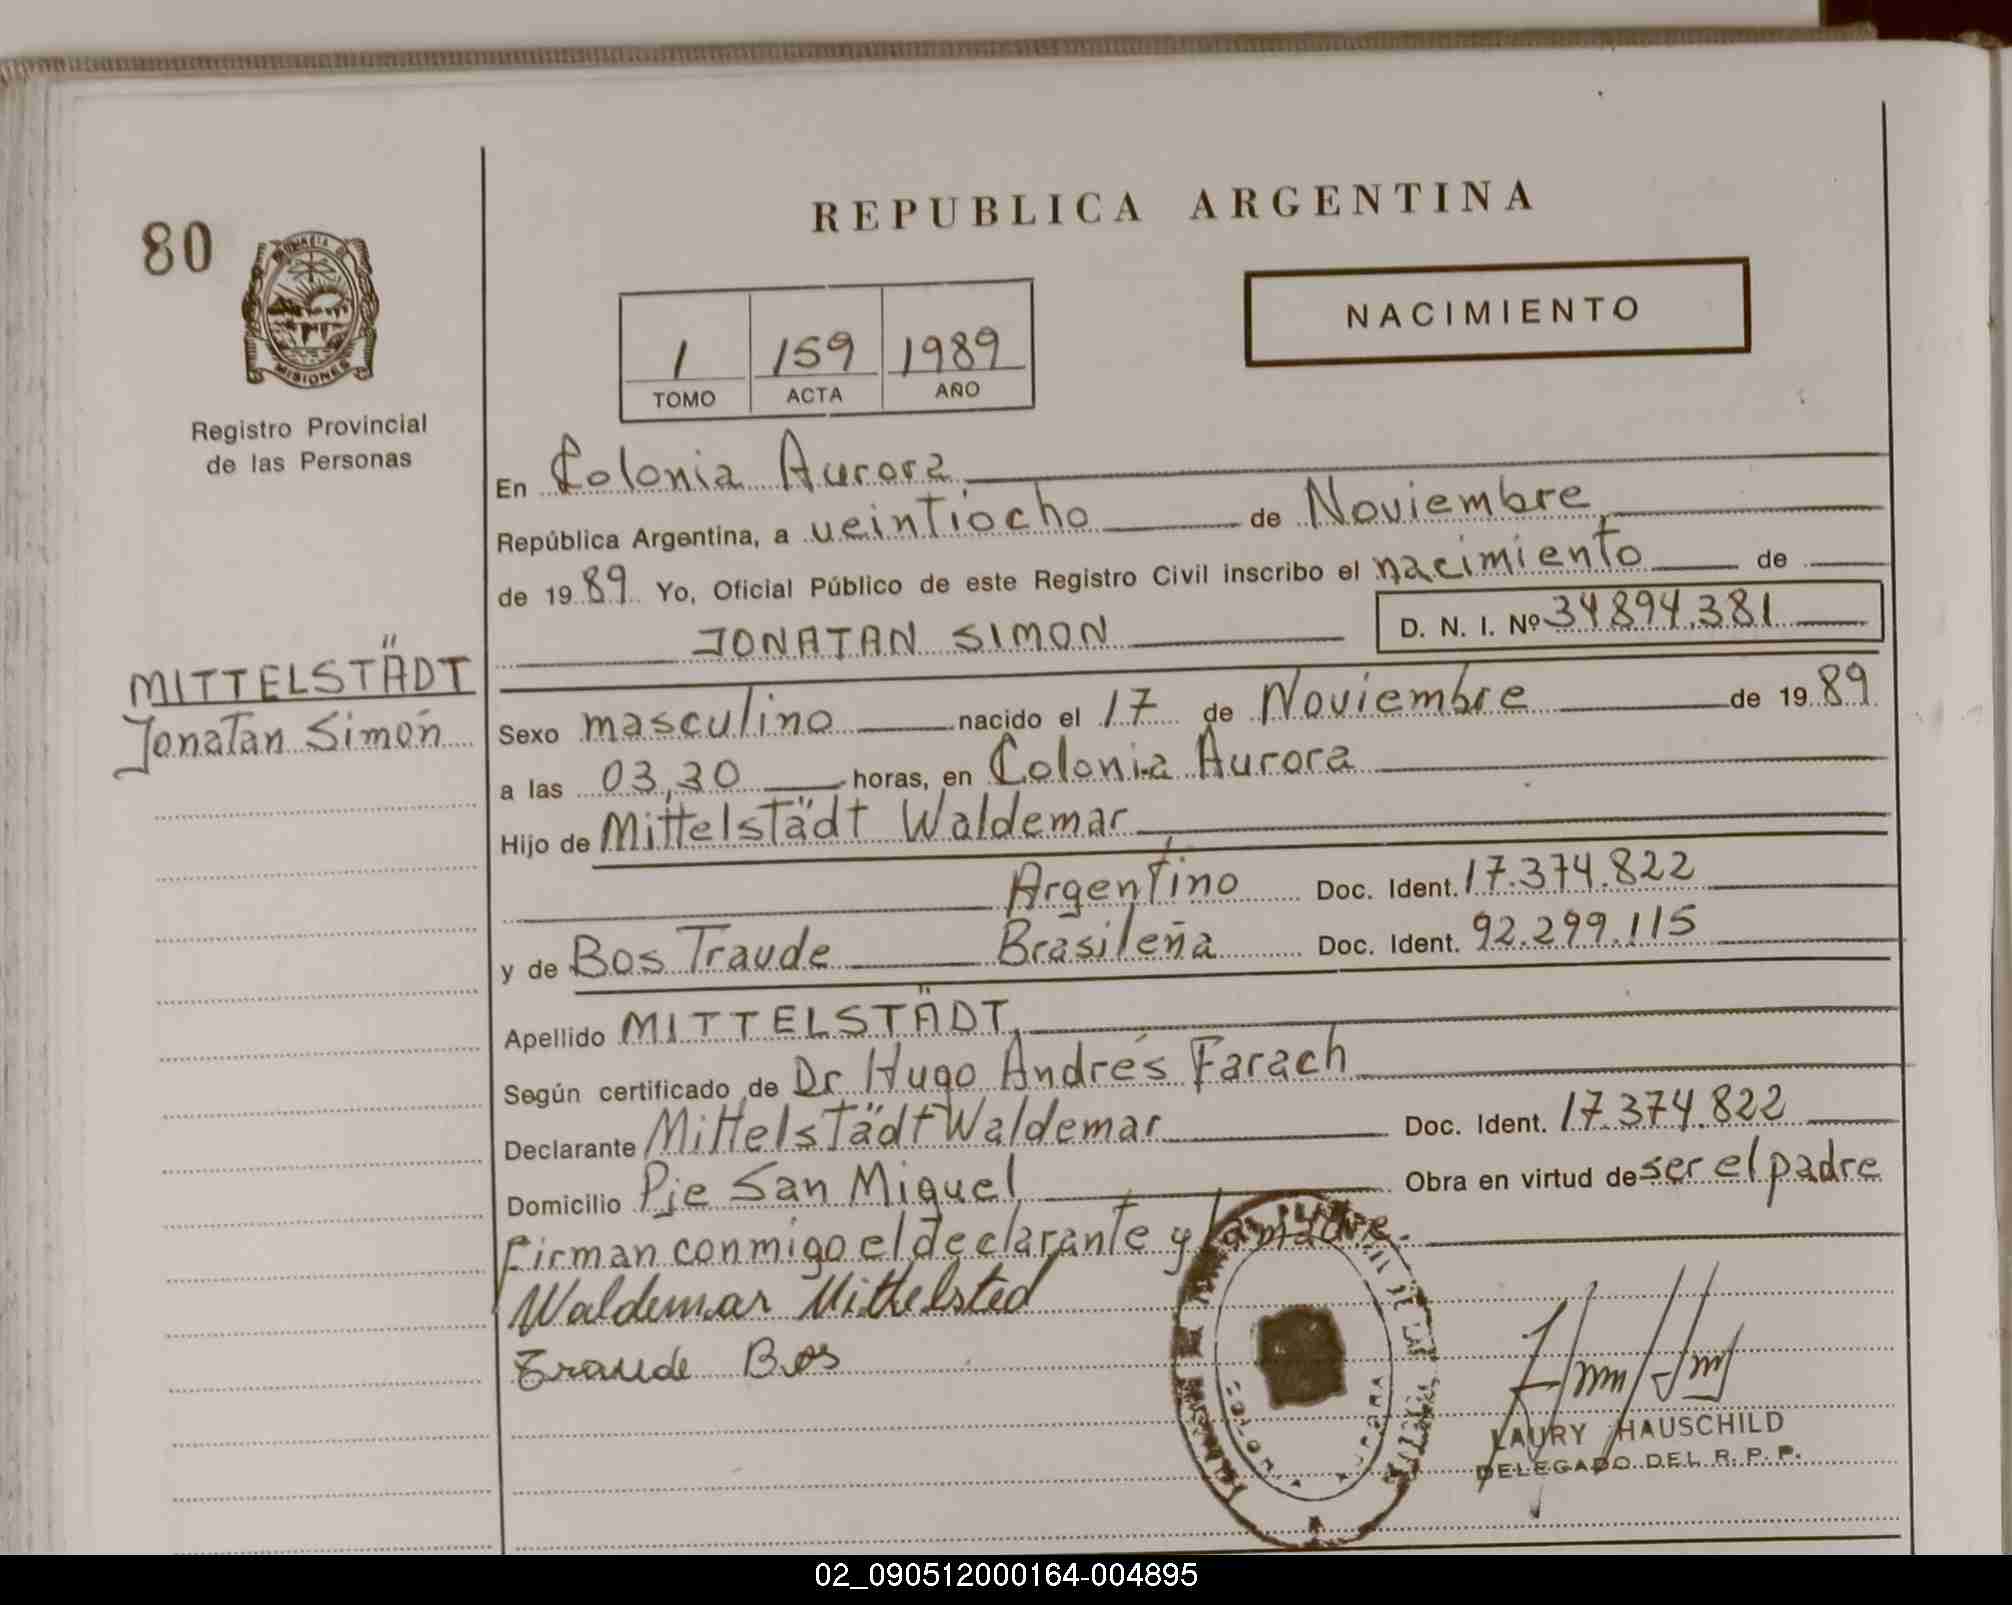 REPUBLICA ARGENTINA
80
NACIMIENTO
1 159 1989
TOMO ACTA AÑO
MISIONES
Registro Provincial
de las Personas
En Colonia Aurora
República Argentina, a veintiocho de Noviembre
de 1989 Yo, Oficial Público de este Registro Civil inscribo el nacimiento de
JONATAN SIMON D. N. I. Nº 34894.381
MITTELSTÄDT
Jonatan Simón
Sexo masculino nacido el 17 de Noviembre de 1989
a las 03,30 horas, en Colonia Aurora
Hijo de Mittelstädt Waldemar
Argentino Doc. Ident. 17.374.822
y de Bos Traude Brasileña Doc. Ident. 92.299.115
Apellido MITTELSTÄDT,
Según certificado de Dr Hugo Andrés Farach
Declarante Mittelstädt Waldemar Doc. Ident. 17.374.822
Domicilio Pje San Miguel Obra en virtud de ser el padre
Firman conmigo el declarante y la madre.
Waldemar Mittelsted
Traude Bos
LAURY HAUSCHILD
DELEGADO DEL R. P. P.
02_090512000164-004895